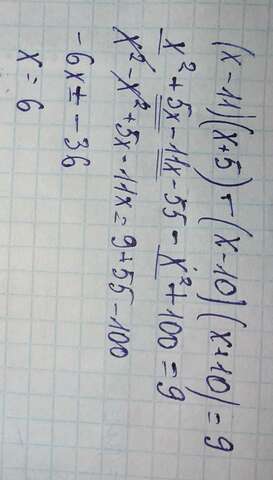 (x-11)(x+5)-(x-10)(x+10)=9
x²+5x-11x-55-x²+100=9
x²-x²+5x-11x=9+55-100
-6x=-36
x=6